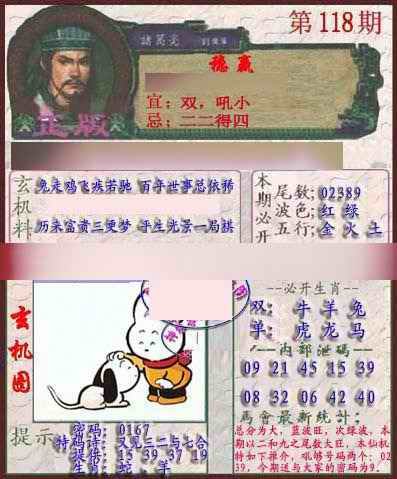 第118期
諸葛亮
穩贏
宜：双，吼小
忌：二二得四
正版
玄机料
兔走鸡飞疾若驰 百年世事总依稀
历来富贵三更梦 于生光景一局棋
本期必开
尾数;02389
波色;红 绿
五行;金 火 土
玄机图
--必开生肖--
双: 牛 羊 兔
单: 虎 龙 马
--内部泄码--
09 21 45 15 39
08 32 06 42 40
馬會最新統計:
总分为大，蓝波旺，次绿波，本期以二和九之尾数大旺，本仙机如下推介，吼够号码两个：0239，今期送与大家的密码为9.
提示
密码: 0167
特码诗: 又见三一与七合
提供: 15 39 37 19
生肖: 蛇、羊